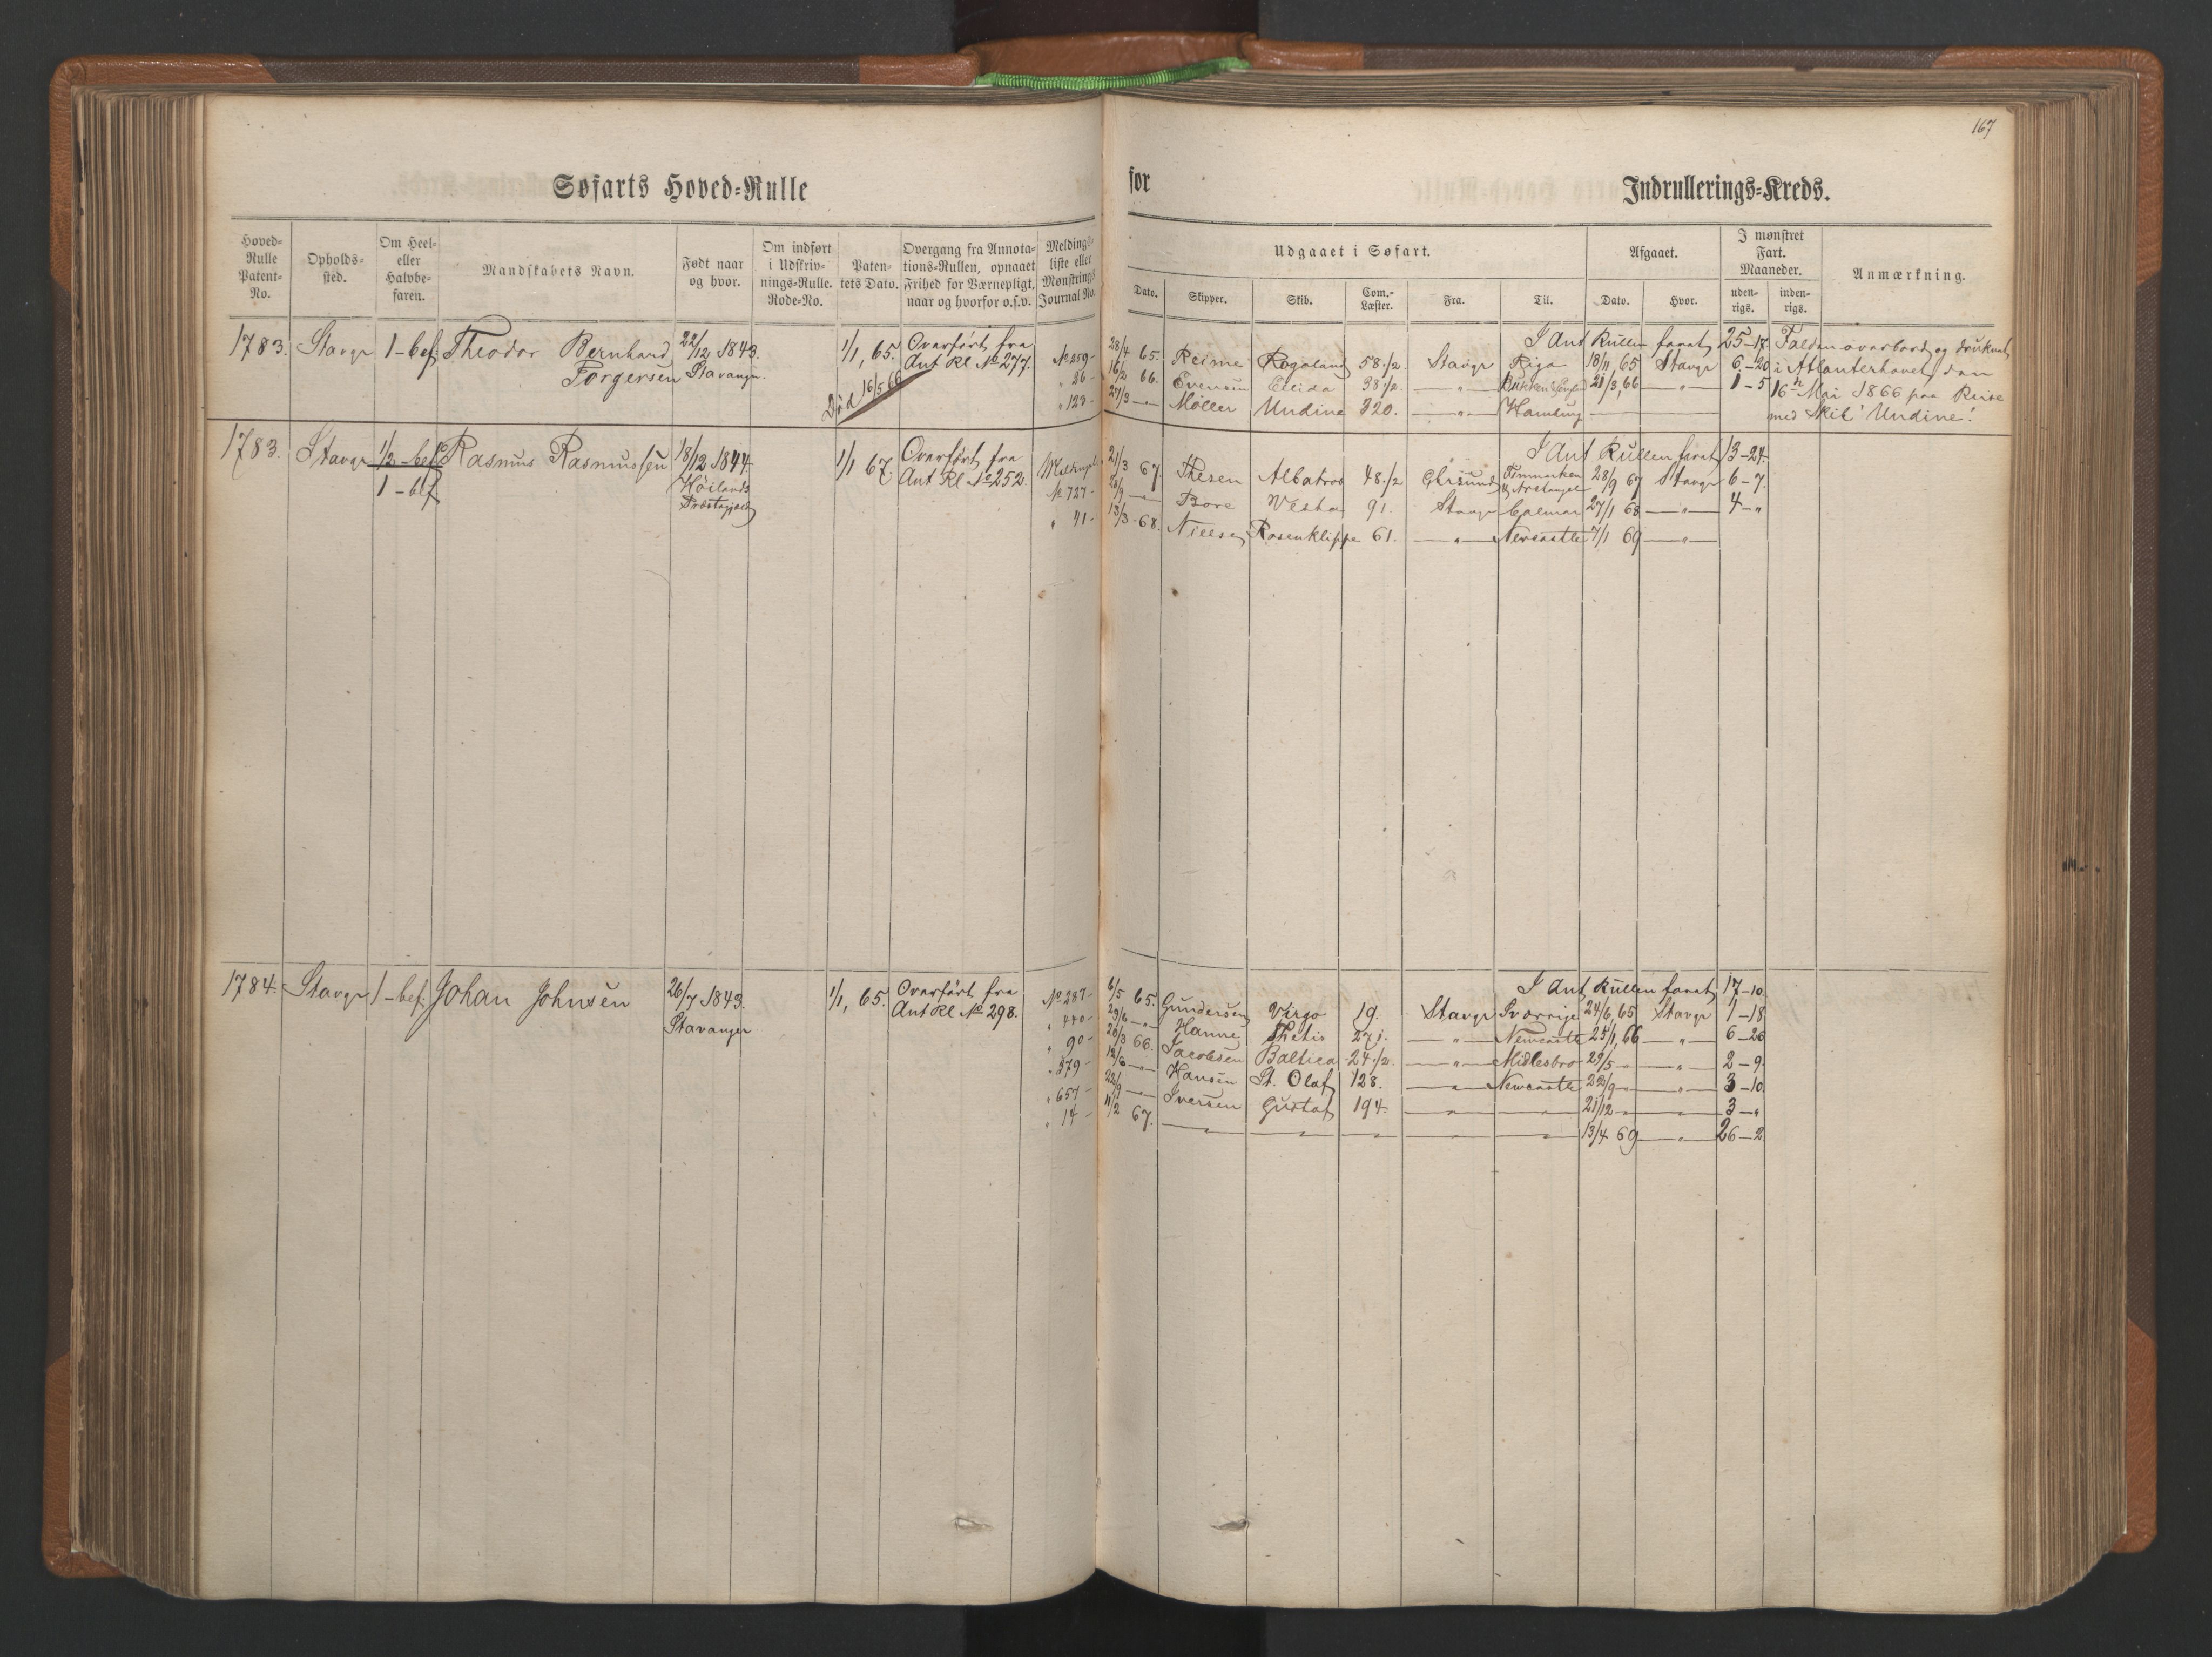 167
Søfarts Hoved-Rulle for Indrullerings-Kreds.
Hoved-Rulle Patent-No.
Opholds-sted.
Om Heel- eller Halvbe-faren.
Mandskabets Navn.
Født naar og hvor.
Om indført i Udskriv-nings-Rulle. Rode-No.
Paten-tets Dato.
Overgang fra Annota-tions-Rullen, opnaaet Frihed for Værnepligt, naar og hvorfor o.s.v.
Meldings-liste eller Mønstrings Journal No.
Udgaaet i Søfart.
Dato. Skipper. Skib. Com.-Læster. Fra. Til.
Afgaaet.
Dato. Hvor.
I mønstret Fart. Maaneder.
uden-rigs. inden-rigs.
Anmærkning.
1783. Stavgr 1-bef. Theodor Bernhard Torgersen
22/12 1843. Stavanger.
1/1, 65.
Død 16/5 66
Overført fra Ant Rl No 277.
I Ant Rullen farat 25-17.
No 259- 28/4 65. Reime Rogaland 58 1/2 Stavgr Riga 18/11 65 Stavgr 6-20
" 26- 16/2 66. Evensen Elida 38 1/2 -"- 21/3, 66 -"- 1-5
" 123- 27/3 -"- Møller Undine 320. -"- Hamburg
Falden overbord og druknet
i Atlanterhavet den
16n Mai 1866 paa Reise
med Skib "Undine".
1783. Stavgr 1/2-bef. Rasmus Rasmussen
1-bef
18/12 1844. Höilands Præstegjæld
1/1 67.
Overført fra Ant Rl No 252.
I Ant Rullen farat 13-24.
21/3 67. Thesen Albatros 48 1/2 Ekersund Finmarken & Archangel 28/9 67 Stavgr 6-7.
No 727- 20/9 -"- Bore Vesta 91. Stavgr Calmar 27/1 68 -"- 4-"
" 41- 13/3-68. Nielsen Rosenklippe 61. -"- Newcastle 7/1 69 -"-
1784. Stavgr 1-bef. Johan Johnsen
26/7 1843. Stavanger
1/1, 65.
Overført fra Ant Rl No 298.
I Ant Rullen farat 17-10.
No 287- 6/5 65. Gundersen Virgo 19. Stavgr Sverrige 24/6, 65 Stavgr 1-18
" 440- 29/6 -"- Hanne Thetis 27 1/2. -"- Newcastle 25/1, 66 -"- 6-26
" 90- 20/3 66. Jacobsen Baltica 24 1/2. -"- Midlesbro 29/5 -"- -"- 2-9.
" 379- 12/6 -"- Hansen St. Olaf 128. -"- Newcastle 22/9 -"- -"- 3-10.
" 657- 22/9 -"- Iversen Gustaf 194. -"- -"- 21/12 -"- -"- 3-"
" 14- 11/2 67. -"- -"- -"- -"- -"- 13/4 69 -"- 26-2.